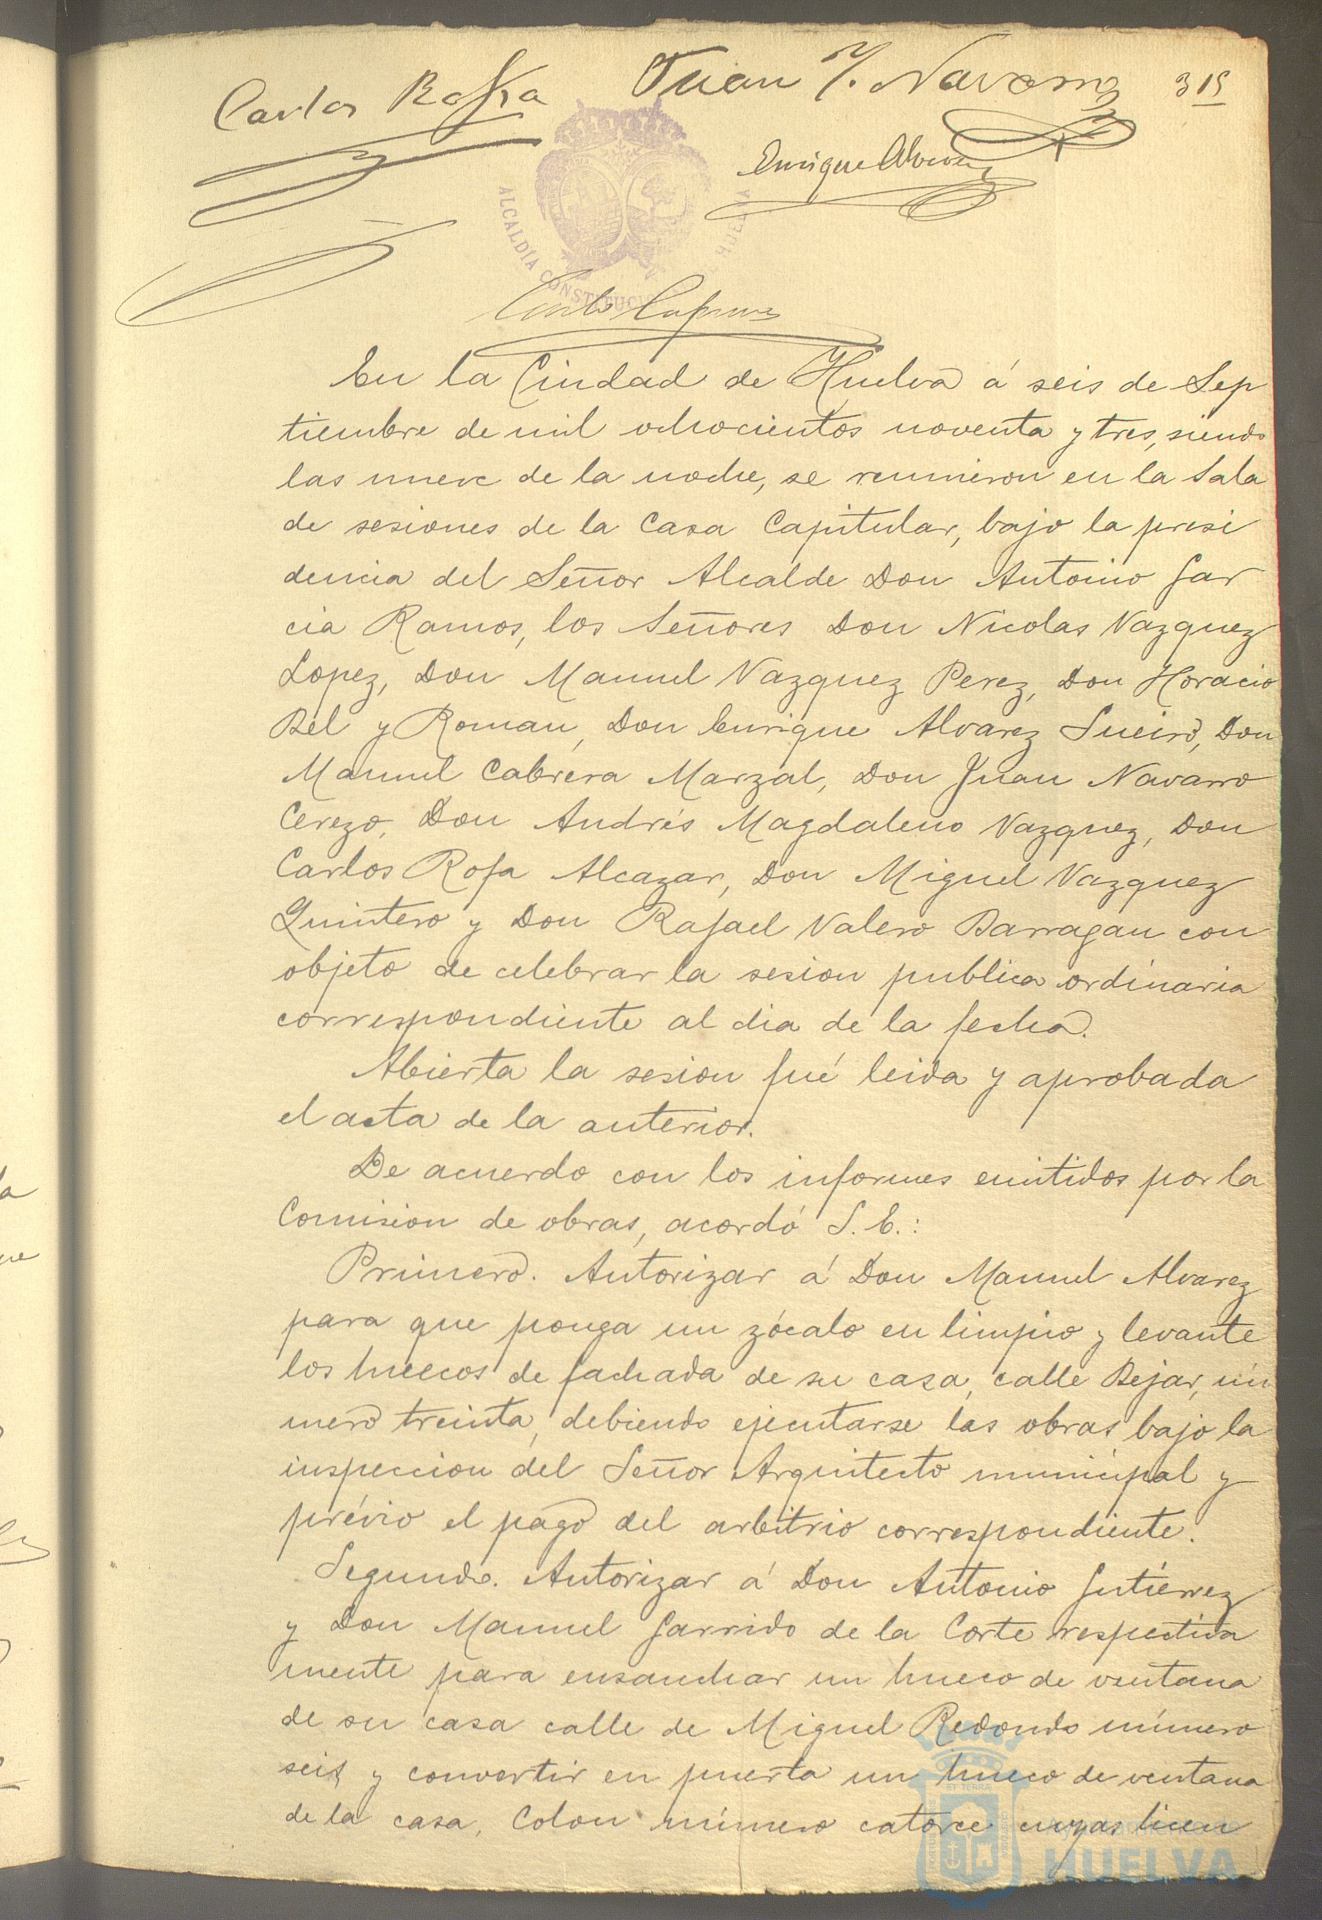 Carlos Rofa
Juan Y. Navarro
315
Enrique Alvarez
ALCALDÍA CONSTITUC HUELVA
En la Ciudad de Huelva á seis de Sep
tiembre de mil ochocientos noventa y tres, siendo
las nueve de la noche, se reunieron en la Sala
de sesiones de la Casa Capitular, bajo la presi
dencia del Señor Alcalde Don Antonio Gar
cia Ramos, los Señores Don Nicolas Vazquez
Lopez, Don Manuel Vazquez Perez, Don Horacio
Bel y Roman, Don Enrique Alvarez Sueiro, Don
Manuel Cabrera Marzal, Don Juan Navarro
Cerezo, Don Andrés Magdaleno Vazquez, Don
Carlos Rofa Alcazar, Don Miguel Vazquez
Quintero y Don Rafael Valero Barragan con
objeto de celebrar la sesion publica ordinaria
correspondiente al dia de la fecha.
Abierta la sesion fué leida y aprobada
el acta de la anterior.
De acuerdo con los informes emitidos por la
Comision de obras, acordó S. E.:
Primero. Autorizar á Don Manuel Alvarez
para que ponga un zócalo en limpio y levante
los huecos de fachada de su casa, calle Bejar, nú
mero treinta, debiendo ejecutarse las obras bajo la
inspeccion del Señor Arquitecto municipal y
prévio el pago del arbitrio correspondiente.
Segundo. Autorizar á Don Antonio Gutiérrez
y Don Manuel Garrido de la Corte respectiva
mente para ensanchar un hueco de ventana
de su casa calle de Miguel Redondo número
seis y convertir en puerta un hueco de ventana
de la casa, Colon número catorce cuyas licen
HUELVA